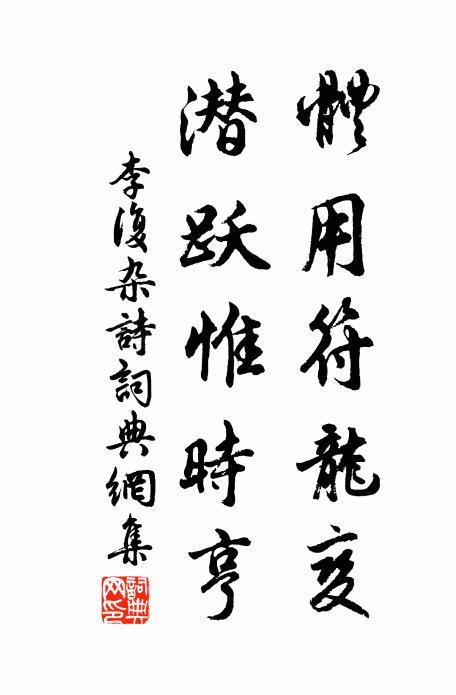 體用符龍变
潜跃惟時亨
李復杂詩詞典網集
詞典网印